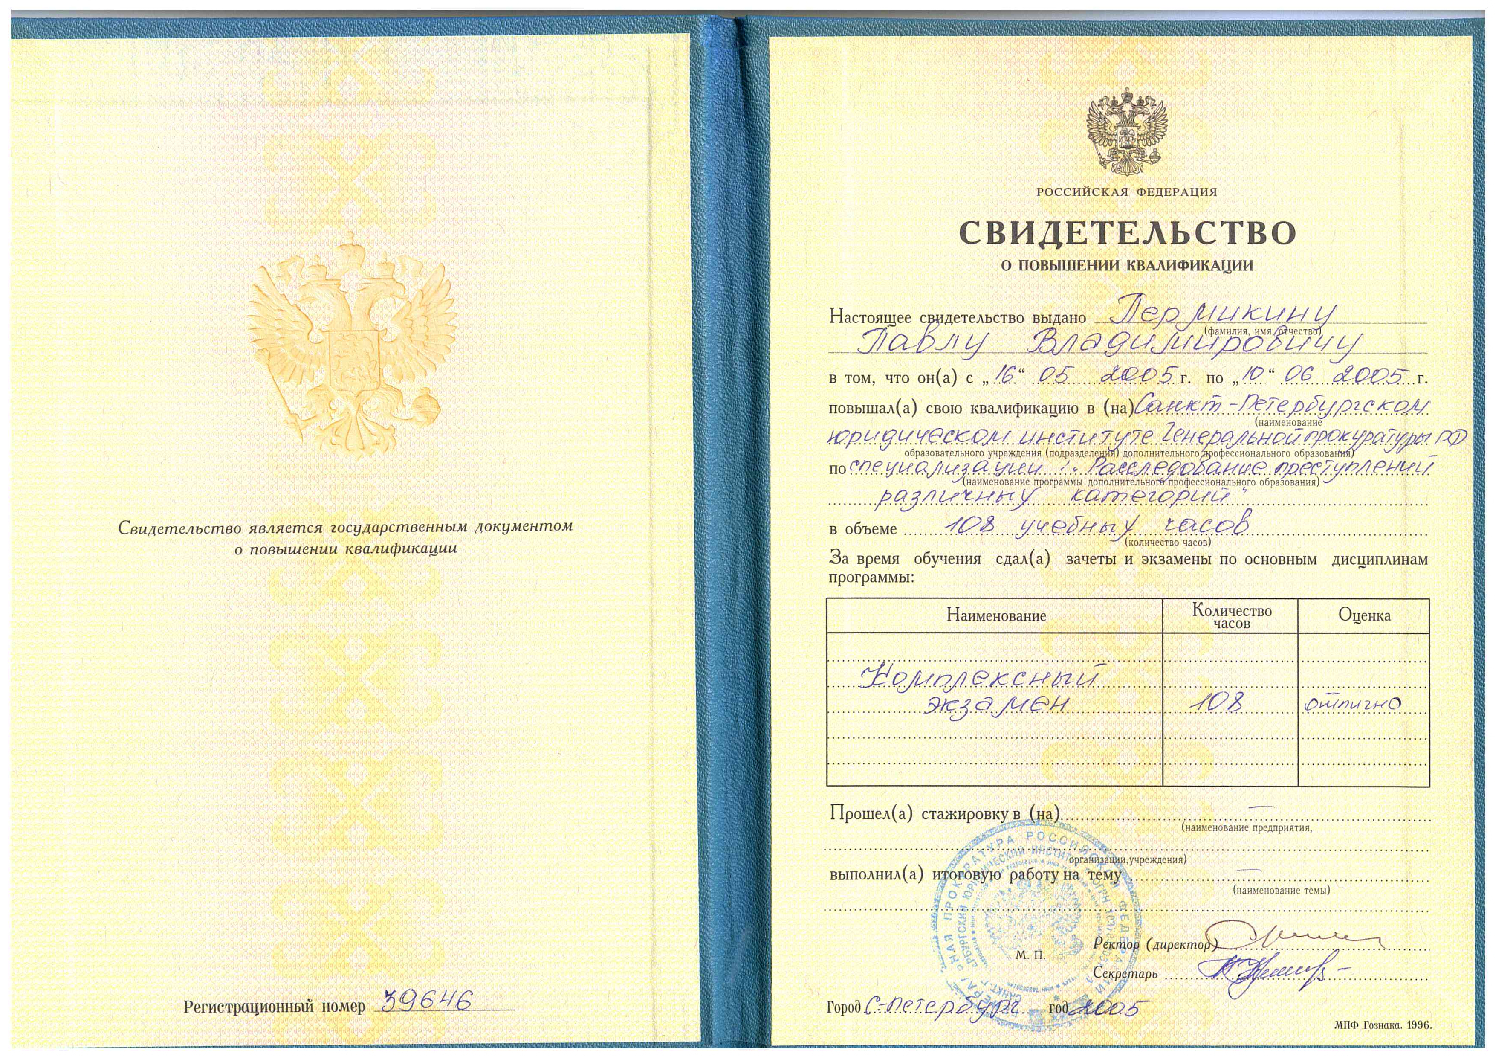 Свидетельство является государственным документом
о повышении квалификации
Регистрационный номер 39646
РОССИЙСКАЯ ФЕДЕРАЦИЯ
СВИДЕТЕЛЬСТВО
О ПОВЫШЕНИИ КВАЛИФИКАЦИИ
Настоящее свидетельство выдано Пермикину
(фамилия, имя, отчество)
Павлу Владимировичу
в том, что он(а) с „16“ 05 2005 г. по „10“ 06 2005 г.
повышал(а) свою квалификацию в (на) Санкт-Петербургском
(наименование
юридическом институте Генеральной прокуратуры РФ
образовательного учреждения (подразделения) дополнительного профессионального образования)
по специализации: "Расследование преступлений
(наименование программы дополнительного профессионального образования)
различных категорий"
в объеме 108 учебных часов
(количество часов)
За время обучения сдал(а) зачеты и экзамены по основным дисциплинам
программы:
Наименование Количество часов Оценка
Комплексный
экзамен 108 отлично
Прошел(а) стажировку в (на) —
(наименование предприятия,
организации, учреждения)
выполнил(а) итоговую работу на тему —
(наименование темы)
М. П.
Ректор (директор)
Секретарь
Город С-Петербург год 2005
МПФ Гознака. 1996.